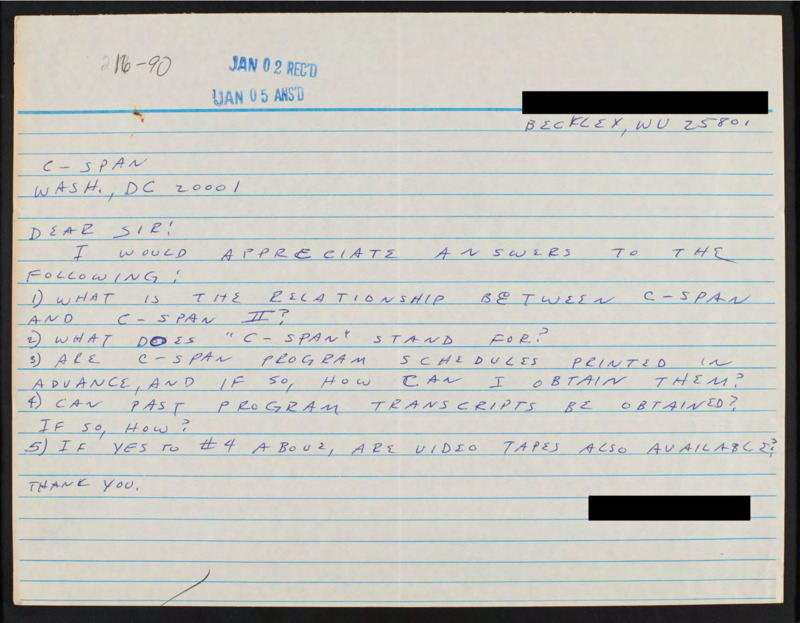 216-90
JAN 02 REC'D
JAN 05 ANS'D
BECKLEY, WV 25801
C-SPAN
WASH., DC 20001
DEAR SIR:
I WOULD APPRECIATE ANSWERS TO THE
FOLLOWING:
1) WHAT IS THE RELATIONSHIP BETWEEN C-SPAN
AND C-SPAN II?
2) WHAT DOES "C-SPAN" STAND FOR?
3) ARE C-SPAN PROGRAM SCHEDULES PRINTED IN
ADVANCE, AND IF SO, HOW CAN I OBTAIN THEM?
4) CAN PAST PROGRAM TRANSCRIPTS BE OBTAINED?
IF SO, HOW?
5) IF YES TO #4 ABOVE, ARE VIDEO TAPES ALSO AVAILABLE?
THANK YOU.